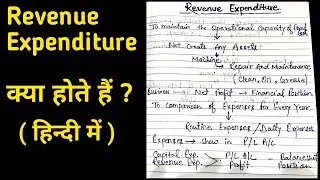 Revenue
Expenditure
क्या होते हैं ?
( हिन्दी में )
Revenue Expenditure
To maintain the Operational Capacity of Fixed
Not Create Any Assets
Machine
Repair And Maintenance
(Clean, Oil, Grease)
Business → Net Profit → Financial Position
To Comparison of Expenses for Every Year
Routine Expenses / Daily Expenses
Expenses → Show in P/L A/c
Capital Exp. P/L A/c - Balance Sheet
Revenue Exp. Profit Position